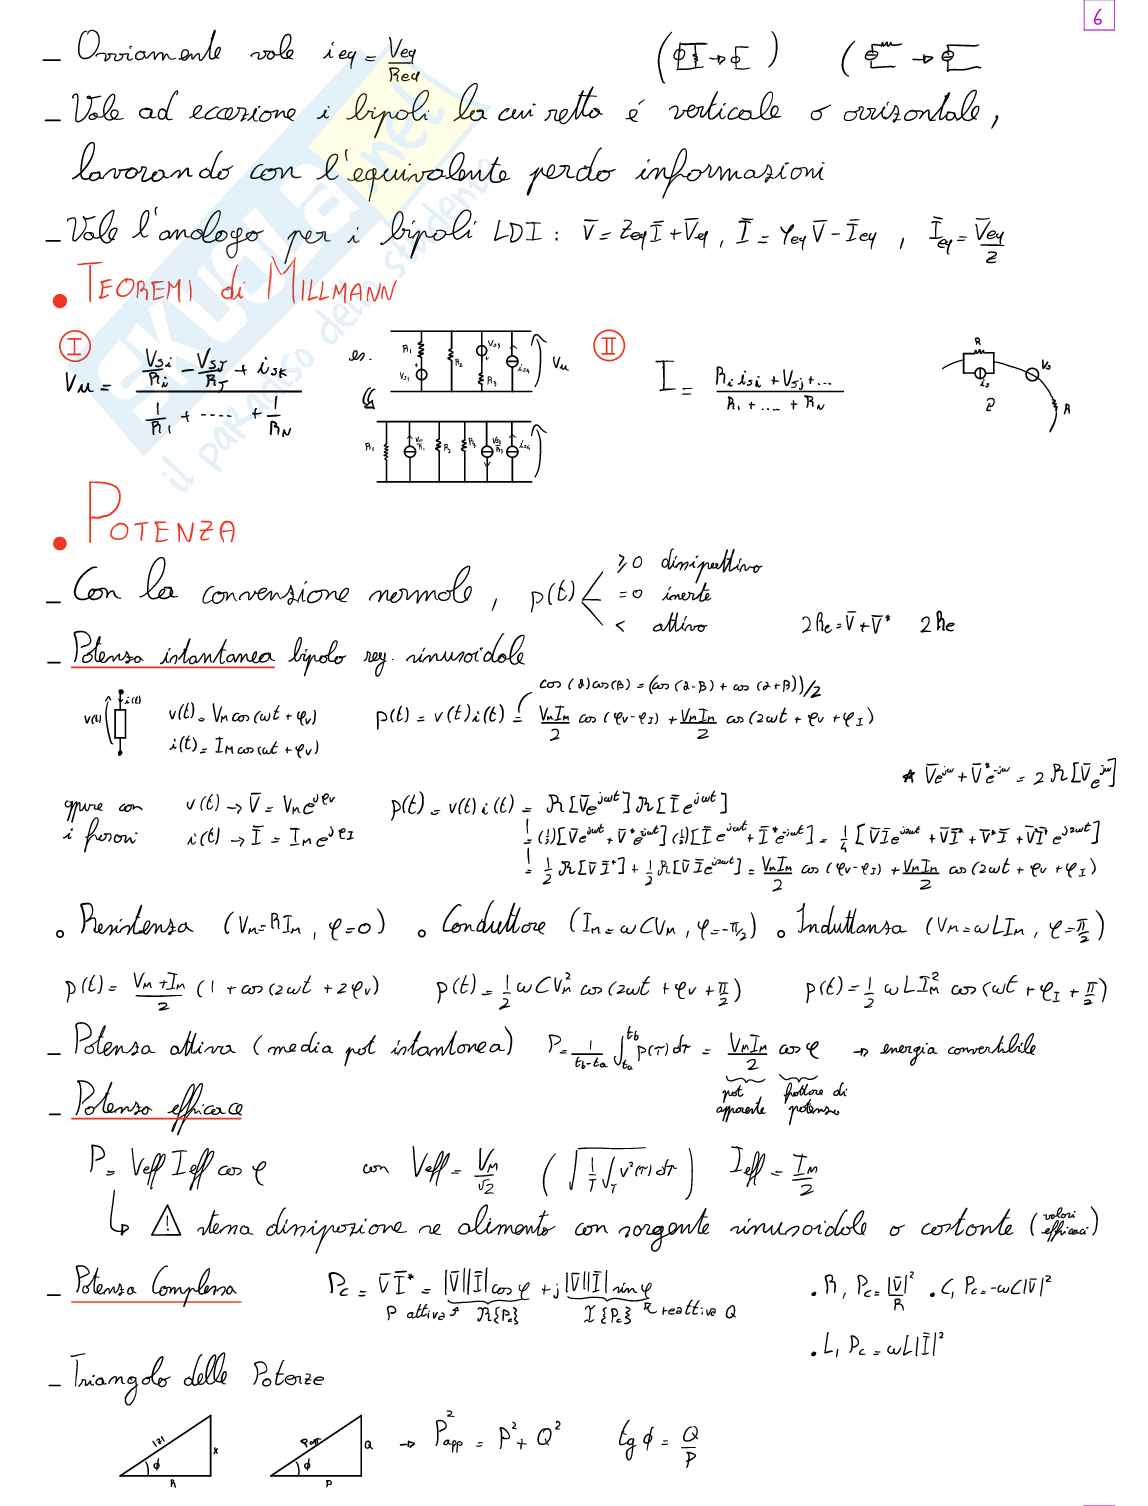 6
– Ovviamente vale i eq = Veq / Req
– Vale ad eccezione i bipoli la cui retta é verticale o orizzontale,
lavorando con l'equivalente perdo informazioni
– Vale l'analogo per i bipoli LDI : V̄ = Zeq Ī + V̄eq , Ī = Yeq V̄ – Īeq , Īeq = V̄eq / Z
• TEOREMI di MILLMANN
I
Vu = (Vsi/Ri – Vsj/Rj + isk) / (1/R1 + ---- + 1/RN)
es.
R1 Vs1 R2 Vs3 R3 is4 Vu
R1 R2 R3 is4
II
I = (Ri isi + Vsj + ...) / (R1 + .... + RN)
R is Vs R
• POTENZA
– Con la convenzione normale , p(t)
≥ 0 dissipattivo
= 0 inerte
< attivo
2Re = V̄ + V̄* 2Re
– Potenza istantanea bipolo reg. sinusoidale
cos(α)cos(β) = (cos(α-β) + cos(α+β))/2
v(t) i(t)
v(t) = Vm cos(ωt + φv)
i(t) = IM cos(ωt + φv)
p(t) = v(t) i(t) = VmIm/2 cos(φv-φI) + VmIm/2 cos(2ωt + φv + φI)
* V̄e^jω + V̄*e^-jω = 2 R[V̄e^jω]
oppure con i fasori
v(t) → V̄ = Vm e^jφv
i(t) → Ī = Im e^jφI
p(t) = v(t) i(t) = R[V̄e^jωt] R[Ī e^jωt]
= (1/2)[V̄e^jωt + V̄*e^jωt] (1/2)[Ī e^jωt + Ī*e^jωt] = 1/4 [V̄Īe^j2ωt + V̄Ī* + V̄*Ī + V̄Ī* e^j2ωt]
= 1/2 R[V̄ Ī*] + 1/2 R[V̄ Ī e^j2ωt] = VmIm/2 cos(φv-φI) + VmIm/2 cos(2ωt + φv + φI)
∘ Resistenza (Vm=RIm , φ=0) ∘ Conduttore (Im = ωCVm , φ=-π/2) ∘ Induttanza (Vm=ωLIm , φ=π/2)
p(t) = (Vm + Im)/2 (1 + cos(2ωt + 2φv) p(t) = 1/2 ωCVm² cos(2ωt + φv + π/2) p(t) = 1/2 ωLIM² cos(ωt + φI + π/2)
– Potenza attiva (media pot istantanea) P = 1/(tb-ta) ∫ta^tb p(τ)dτ = VmIm/2 cosφ → energia convertibile
pot apparente
fattore di potenza
– Potenza efficace
P = Veff Ieff cos φ con Veff = VM/√2 (√(1/T ∫T v²(τ)dτ)) Ieff = Im/2
↳ ⚠ stessa dissipazione se alimento con sorgente sinusoidale o costante (valori efficaci)
– Potenza Complessa Pc = V̄ Ī* = |V̄||Ī| cos φ + j |V̄||Ī| sin φ
P attiva R{Pc} I{Pc} reattiva Q
• R, Pc = |V̄|²/R • C, Pc = -ωC|V̄|²
• L, Pc = ωL|Ī|²
– Triangolo delle Potenze
|Z| x φ R
Papp Q φ P
→ P²app = P² + Q² tg φ = Q/P
SKUOLA.net
il paradiso dello studente